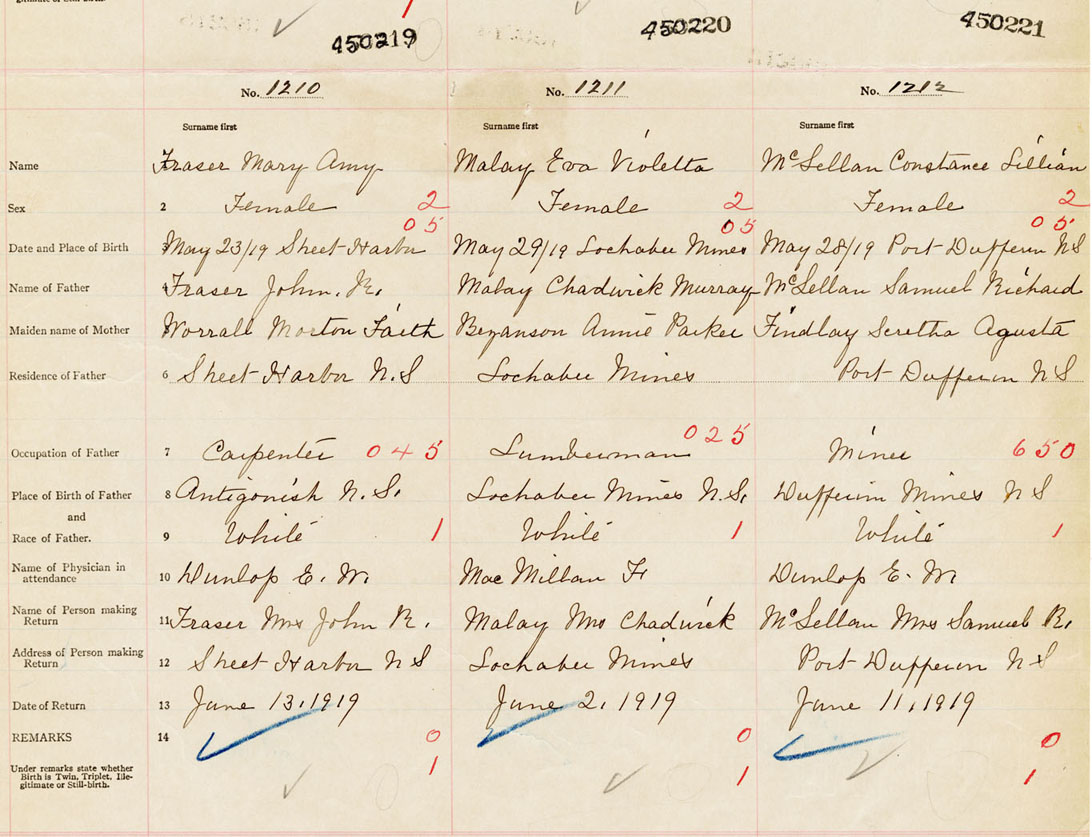 gitimate or Still-birth. 1
450219 450220 450221
No. 1210 No. 1211 No. 1212
Surname first Surname first Surname first
Name Fraser Mary Amy Malay Eva Violetta McLellan Constance Lillian
Sex 2 Female 2 Female 2 Female 2
05 05 05
Date and Place of Birth 3 May 23/19 Sheet Harbor May 29/19 Lochaber Mines May 28/19 Port Dufferin NS
Name of Father 4 Fraser John. R. Malay Chadwick Murray McLellan Samuel Richard
Maiden name of Mother 5 Worrall Morton Faith Bezanson Annie Parker Findlay Seretha Agusta
Residence of Father 6 Sheet Harbor N.S Lochaber Mines Port Dufferin N S
Occupation of Father 7 Carpenter 045 Lumberman 025 Miner 650
Place of Birth of Father 8 Antigonish N.S. Lochaber Mines N.S. Dufferin Mines N S
and
Race of Father. 9 White 1 White 1 White 1
Name of Physician in
attendance 10 Dunlop E. W. Mac Millan F Dunlop E. W
Name of Person making
Return 11 Fraser Mrs John R. Malay Mrs Chadwick McLellan Mrs Samuel R.
Address of Person making
Return 12 Sheet Harbor N S Lochaber Mines Port Dufferin N S
Date of Return 13 June 13, 1919 June 2, 1919 June 11, 1919
REMARKS 14 0 0 0
Under remarks state whether 1 1 1
Birth is Twin, Triplet, Ille-
gitimate or Still-birth.